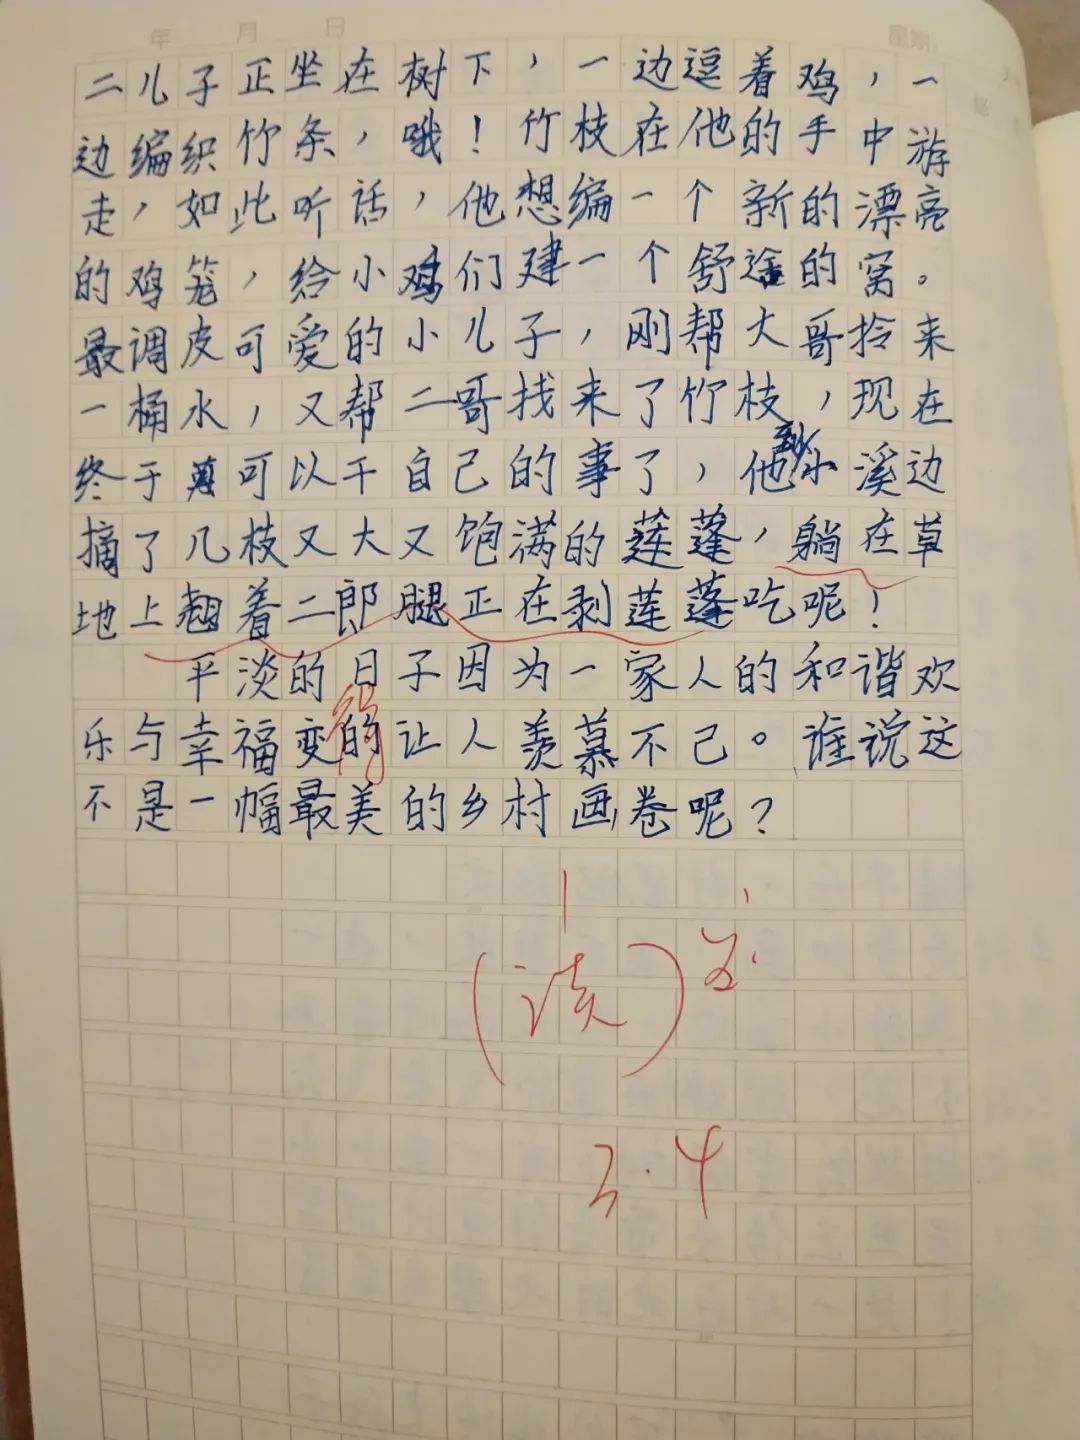 年 月 日 星期:
二儿子正坐在树下，一边逗着鸡，一
边编织竹条，哦！竹枝在他的手中游
走，如此听话，他想编一个新的漂亮
的鸡笼，给小鸡们建一个舒适的窝。
最调皮可爱的小儿子，刚帮大哥拎来
一桶水，又帮二哥找来了竹枝，现在
终于可以干自己的事了，他到小溪边
摘了几枝又大又饱满的莲蓬，躺在草
地上翘着二郎腿正在剥莲蓬吃呢！
平淡的日子因为一家人的和谐欢
得
乐与幸福变的让人羡慕不已。谁说这
不是一幅最美的乡村画卷呢？
(读)
3.4